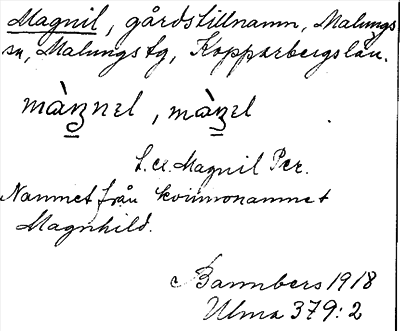 Magnil, gårdstillnamn, Malungs
sn, Malungs tg, Kopparbergs län.
T. ex. Magnil Per.
Namnet från kvinnonamnet
Magnhild.
Bannbers 1918
Ulma 379:2